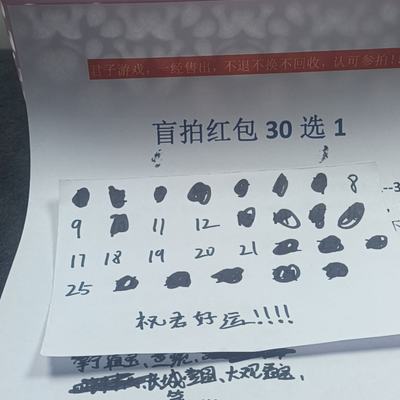 君子游戏，一经售出，不退不换不回收，认可参拍！
盲拍红包 30 选 1
8
9 11 12
17 18 19 20 21
25
祝君好运!!!!
大观园